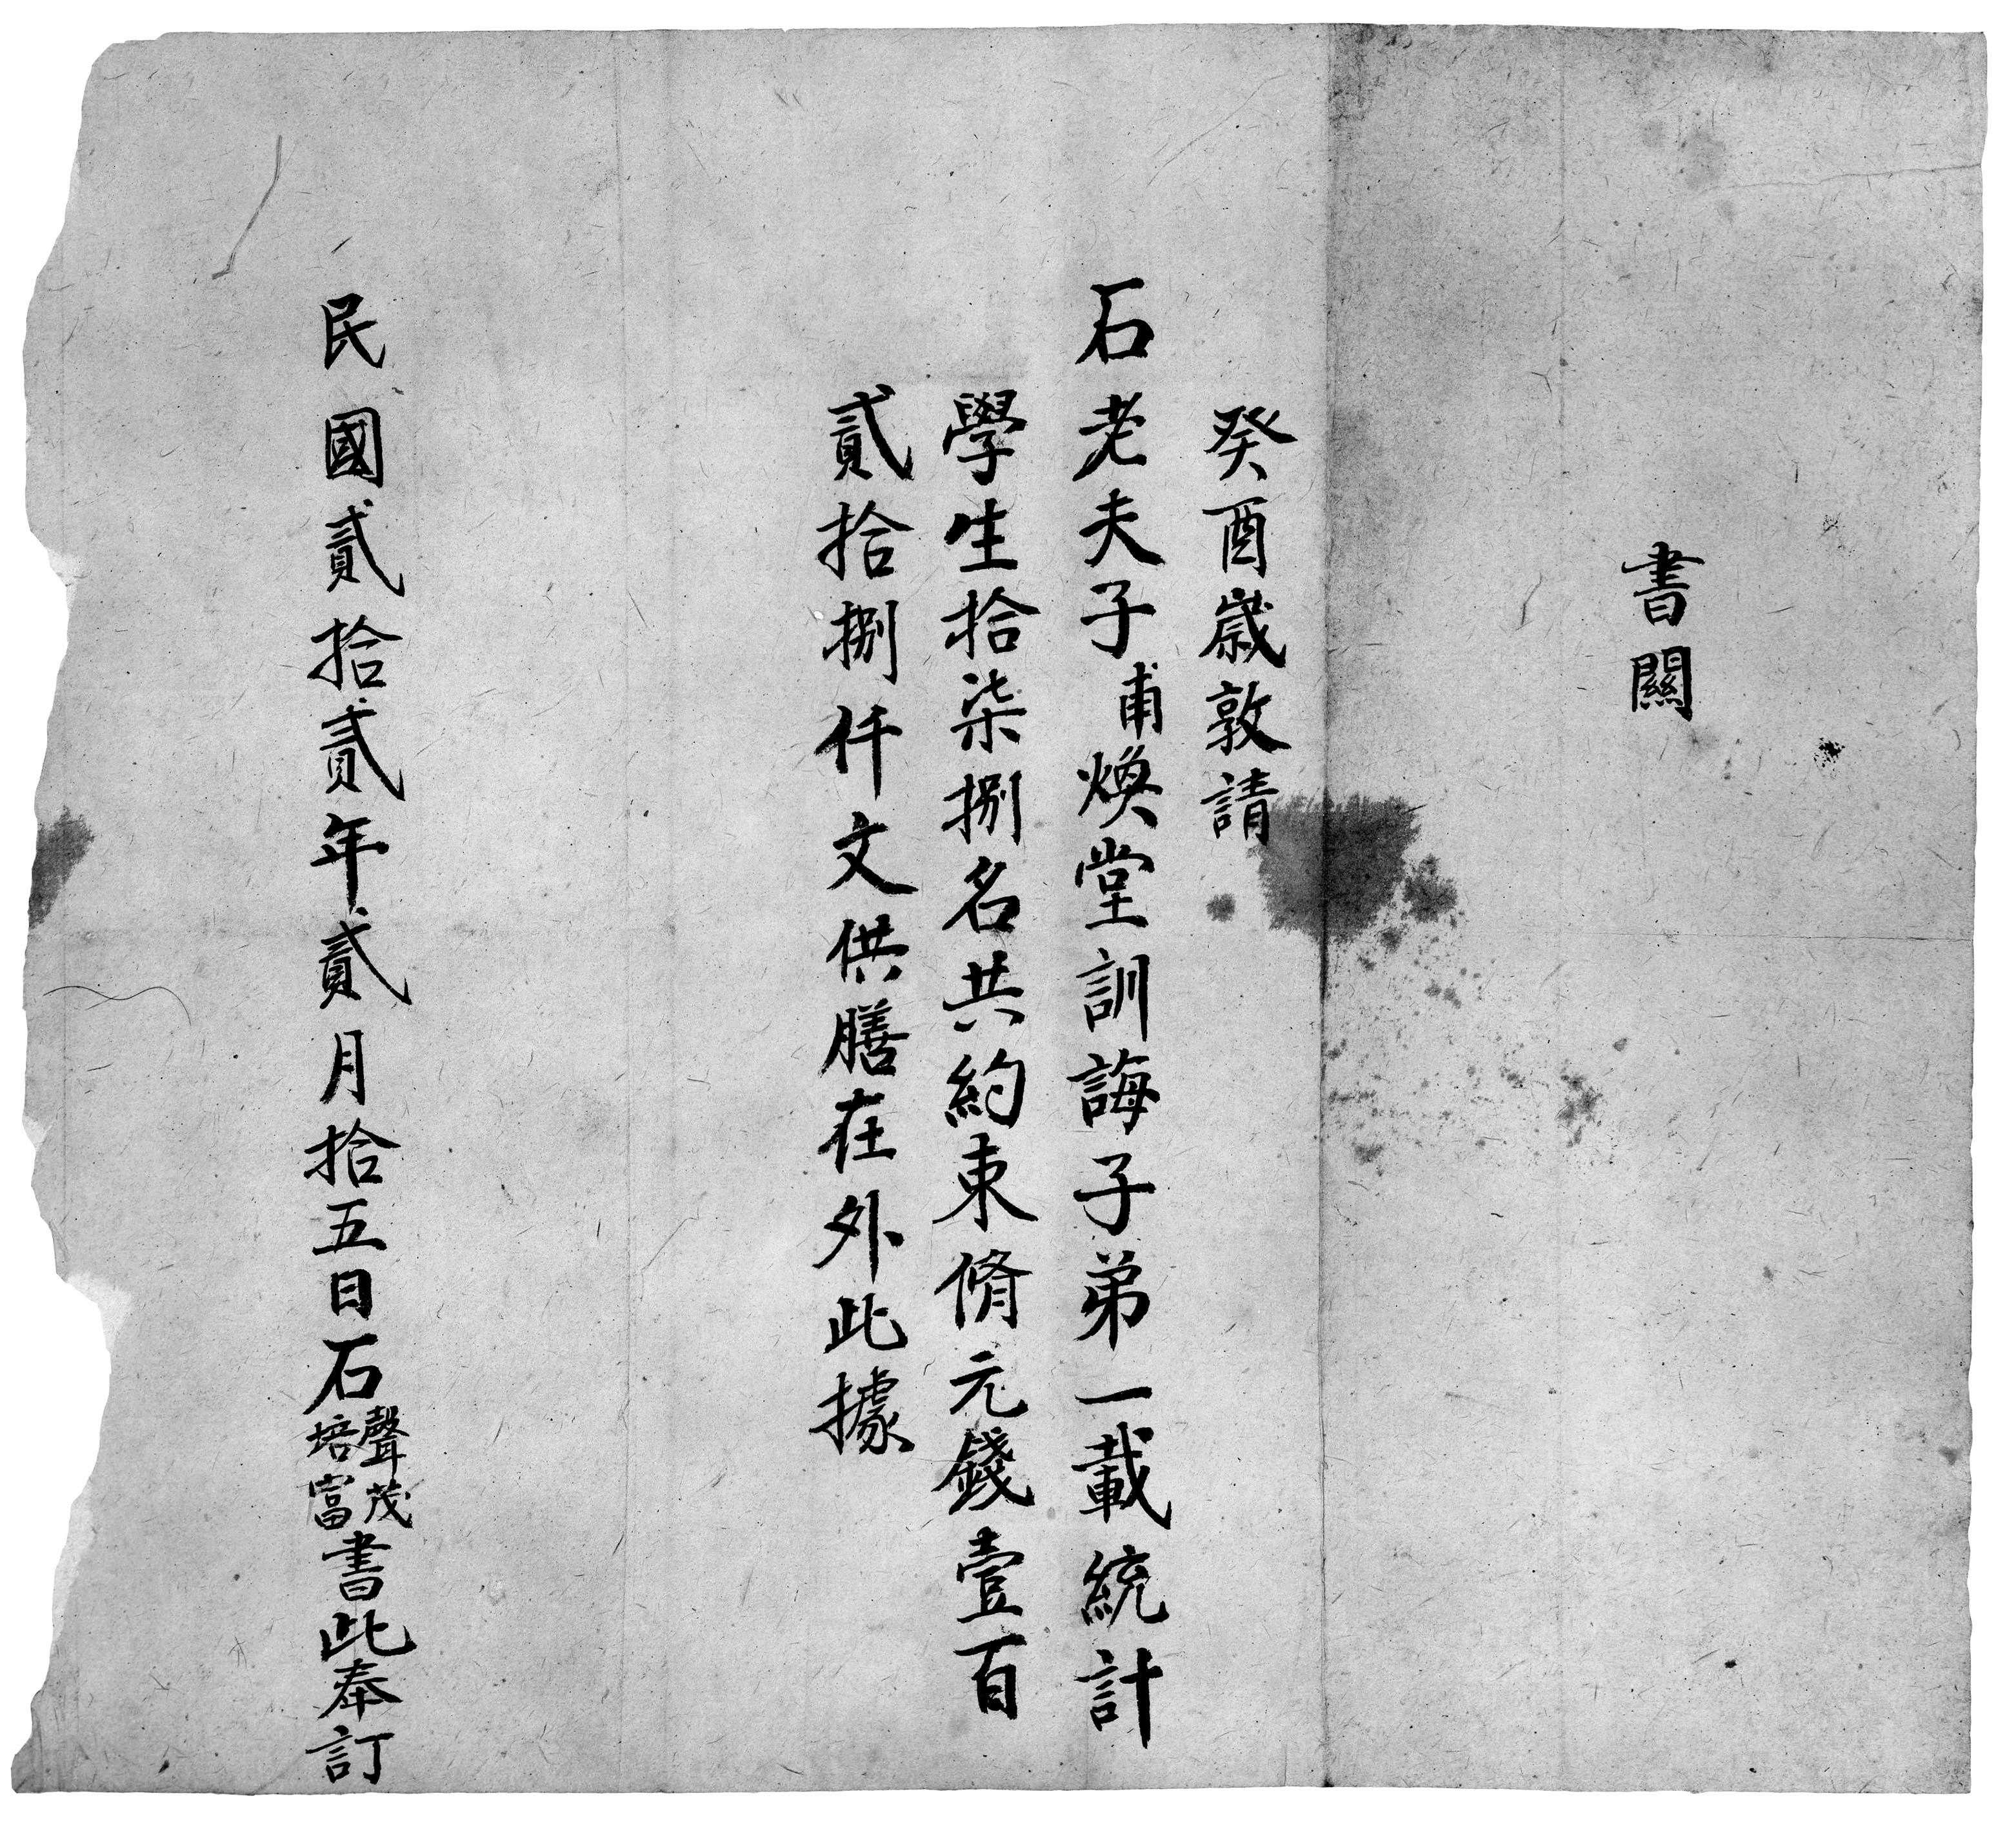 書關
癸酉歲敦請
石老夫子甫煥堂訓誨子弟一載統計
學生拾柒捌名共約束脩元錢壹百
貳拾捌仟文供膳在外此據
民國貳拾貳年貳月拾五日石聲茂培富書此奉訂